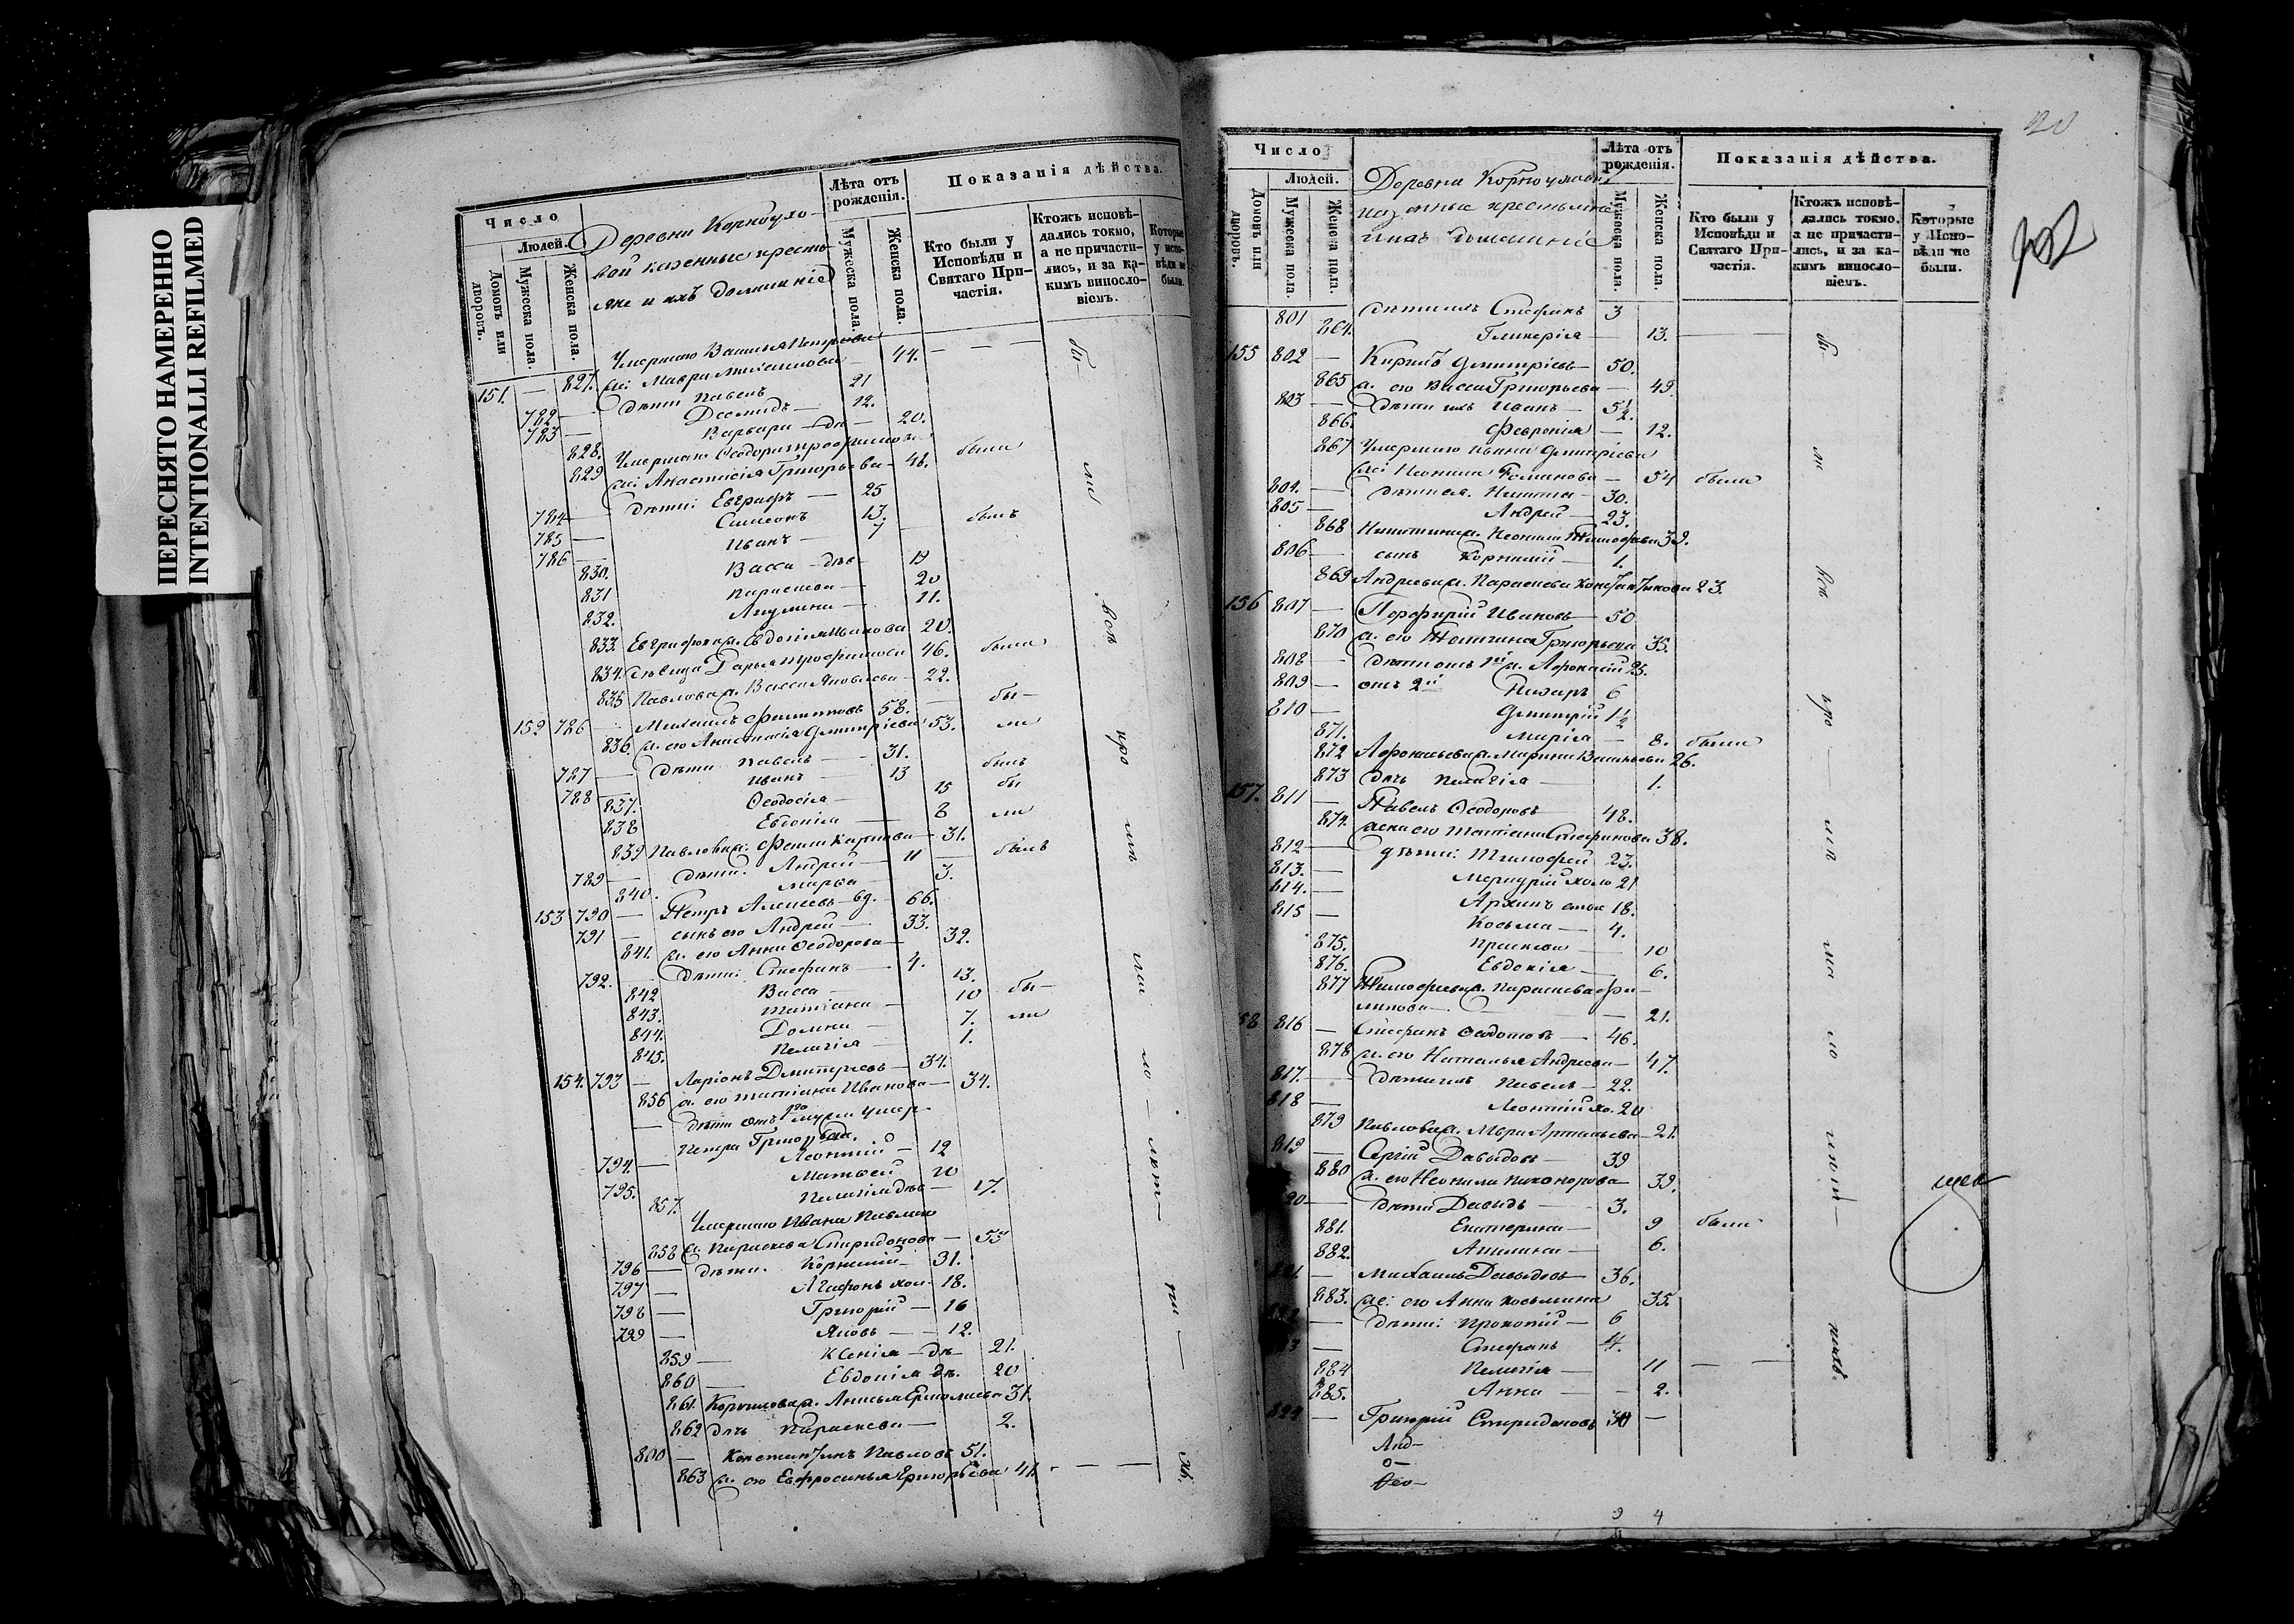 ПЕРЕСНЯТО НАМЕРЕННО
INTENTIONALLI REFILMED
Число
Людей.
Домовъ или дворовъ.
Мужеска пола.
Женска пола.
Деревни Корноухо-
вой казенные кресть-
яне и ихъ домашніе
Лѣта отъ рожденія.
Мужеска пола.
Женска пола.
Показанія дѣйства.
Кто были у Исповѣди и Святаго Причастія.
Ктожъ исповѣдались токмо, а не причастились, и за какимъ винословіемъ.
Которые у исповѣди не были.
Умершаго Василья Петрова
151. — 827. ж: Мавра Михаилова — 44.
782 — дѣти Павелъ 21
783 — Діомидъ — 12.
828. Варвара — дѣ — 20.
Умершаго Ѳеодора Трофимова
829 ж: Анастасія Григорьева — 48. были
784 — дѣти: Евграфъ — 25
785 — Симеонъ 13.
786 — Иванъ — 7 былъ
830. Васса — дѣв — 19
831 Параскева — 20
832. Акулина — 11.
833. Евграфова ж. Евдокія Иванова 20.
834. дѣвица Дарья Трофимова 46. были
835 Павлова ж. Васса Яковлева — 22.
152 786 — Михаилъ Филиповъ 58. бы-
836. ж. его Анастасія Дмитріева 53. ли
787 — дѣти Павелъ — 31.
788 — Иванъ — 13 былъ
837. Ѳеодосія — 15 бы
838 Евдокія — 8 ли
839 Павлова ж: Фекла Карпова — 31.
789 — дѣти. Андрей — 11 былъ
840. Марѳа — 3.
153 790 — Петръ Алексѣевъ — вд. — 66.
791 — сынъ его Андрей — 33.
841. ж. его Анна Ѳеодорова — 32.
792. — дѣти: Стефанъ — 4.
842 Васса — 13.
843. Татіана — 10 бы-
844. Домна — 7. ли
845. Пелагія — 1.
154. 793 — Ларіонъ Дмитріевъ — 34.
856 ж. его Татіана Иванова — 34.
— дѣти отъ 1го мужа умер.
Петра Григорьева.
794. — Леонтій — 12
795. Матвей 10
857. Пелагія дѣв — 17.
Умершаго Ивана Павлова
858 ж. Параскева Спиридонова — 55
796 — дѣти. Корнилій — 31.
797 — Агафонъ хол. 18.
798 — Григорій — 16
799 — Яковъ — — 12.
859 — Ксенія — дѣ — 21.
860 — Евдокія дѣ. 20
861. Корнилова ж. Анисья Ермолаева 31.
862 дчь Параскева — 2.
800 — Константинъ Павловъ 51.
863 ж. его Евфросинья Григорьева 41.
20
Число
Людей.
Домовъ или дворовъ.
Мужеска пола.
Женска пола.
Деревни Корноуховой
казенные крестьяне
и ихъ домашніе
Лѣта отъ рожденія.
Мужеска пола.
Женска пола.
Показанія дѣйства.
Кто были у Исповѣди и Святаго Причастія.
Ктожъ исповѣдались токмо, а не причастились, и за какимъ винословіемъ.
Которые у Исповѣди не были.
801 дѣти ихъ Стефанъ 3
864. Гликерія — 13.
155 802 — Кирилъ Дмитріевъ — 50.
865 ж. его Васса Григорьева — 49.
803 — дѣти ихъ Иванъ — 5½
866. Февронія — 12.
867 Умершаго Ивана Дмитріева
ж: Неонила Фомина — 54 были
804. — дѣти ея. Никита — 30.
805 — Андрей — 23.
868 Никитина ж. Неонила Тимофѣева 32.
806 — сынъ Корнилій — 1.
869 Андреева ж. Параскева Константинова 23.
156 807 — Порфирій Ивановъ — 50
870 ж. его Татіана Григорьева 35.
808 — дѣти отъ 1й ж. Афонасій 25.
809 — отъ 2й Назаръ 6
810 — Дмитрій 1½
871. Марія — 8. были
872 Афонасьева ж. Марина Васильева 26.
873 дчь Пелагія — 1.
157. 811 — Павелъ Ѳеодоровъ 48.
874. жена его Татіана Стефанова 38.
812 — дѣти: Тимофей 23.
813. — Меркурій холо 21
814. — Архипъ 18.
815 — Косьма — 4.
875. Праскева — 10
876. Евдокія — 6.
877 Тимофеева ж. Параскева Фи-
липова — 21.
58 816 — Стефанъ Ѳедотовъ — 46.
878 ж. его Наталья Андреева — 47.
817. — дѣти ихъ Павелъ — 22.
818 — Леонтій хо. 20
879 Павлова ж. Мавра Артемьева — 21.
819 — Сергій Давыдовъ — 39
880 ж. его Неонила Никонорова 39.
20 — дѣти Давыдъ — 3.
881. Екатерина — 9 были
882. Акилина — 6.
21. — Михаилъ Давыдовъ 36.
883. ж: его Анна Косьмина 35.
— дѣти: Прокопій — 6
— Стефанъ 4.
884 Пелагія — 11
885. Анна — 2.
— Григорій Спиридоновъ 30
9 4